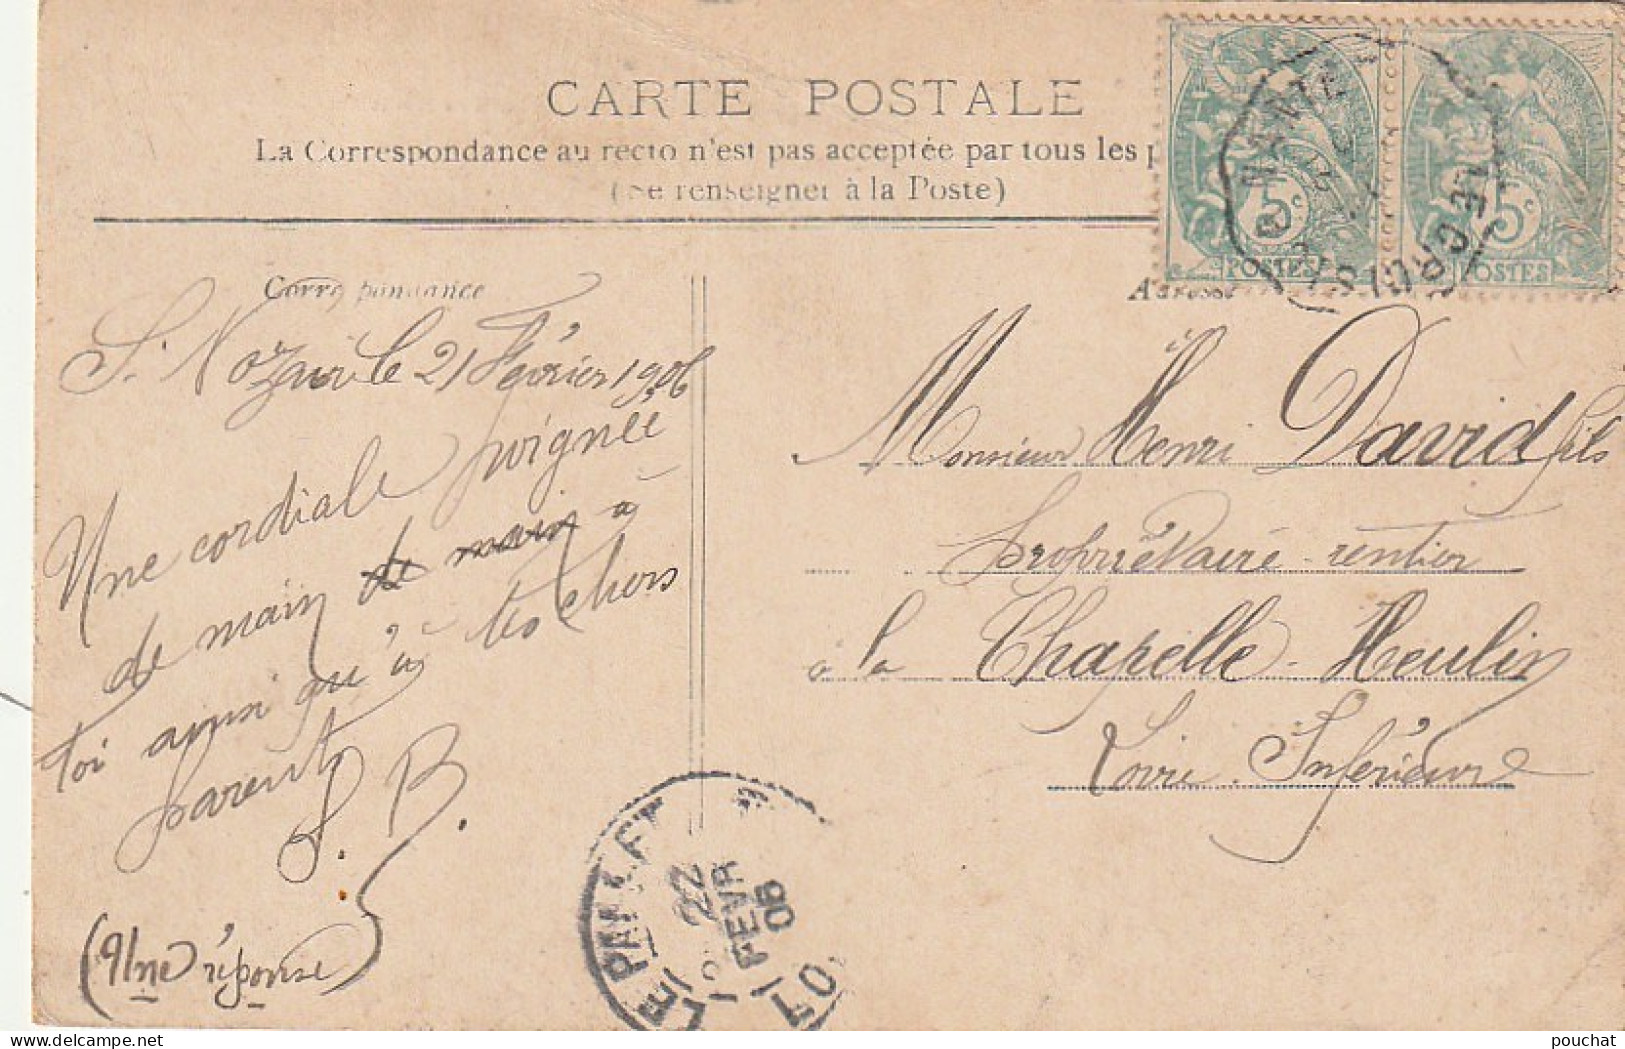 CARTE POSTALE
La Correspondance au recto n'est pas acceptée par tous les
(Se renseigner à la Poste)
Correspondance
Adresse
5c
POSTES
5c
POSTES
S. Nazaire le 21 Février 1906
Une cordiale poignée
de main de main à
toi ainsi qu'à tes chers
parents
J. B.
(Une réponse)
Monsieur Henri David fils
Propriétaire-rentier
à la Chapelle-Heulin
Loire-Inférieure
LE PALLET
22
FEVR
06
LO
pouchat